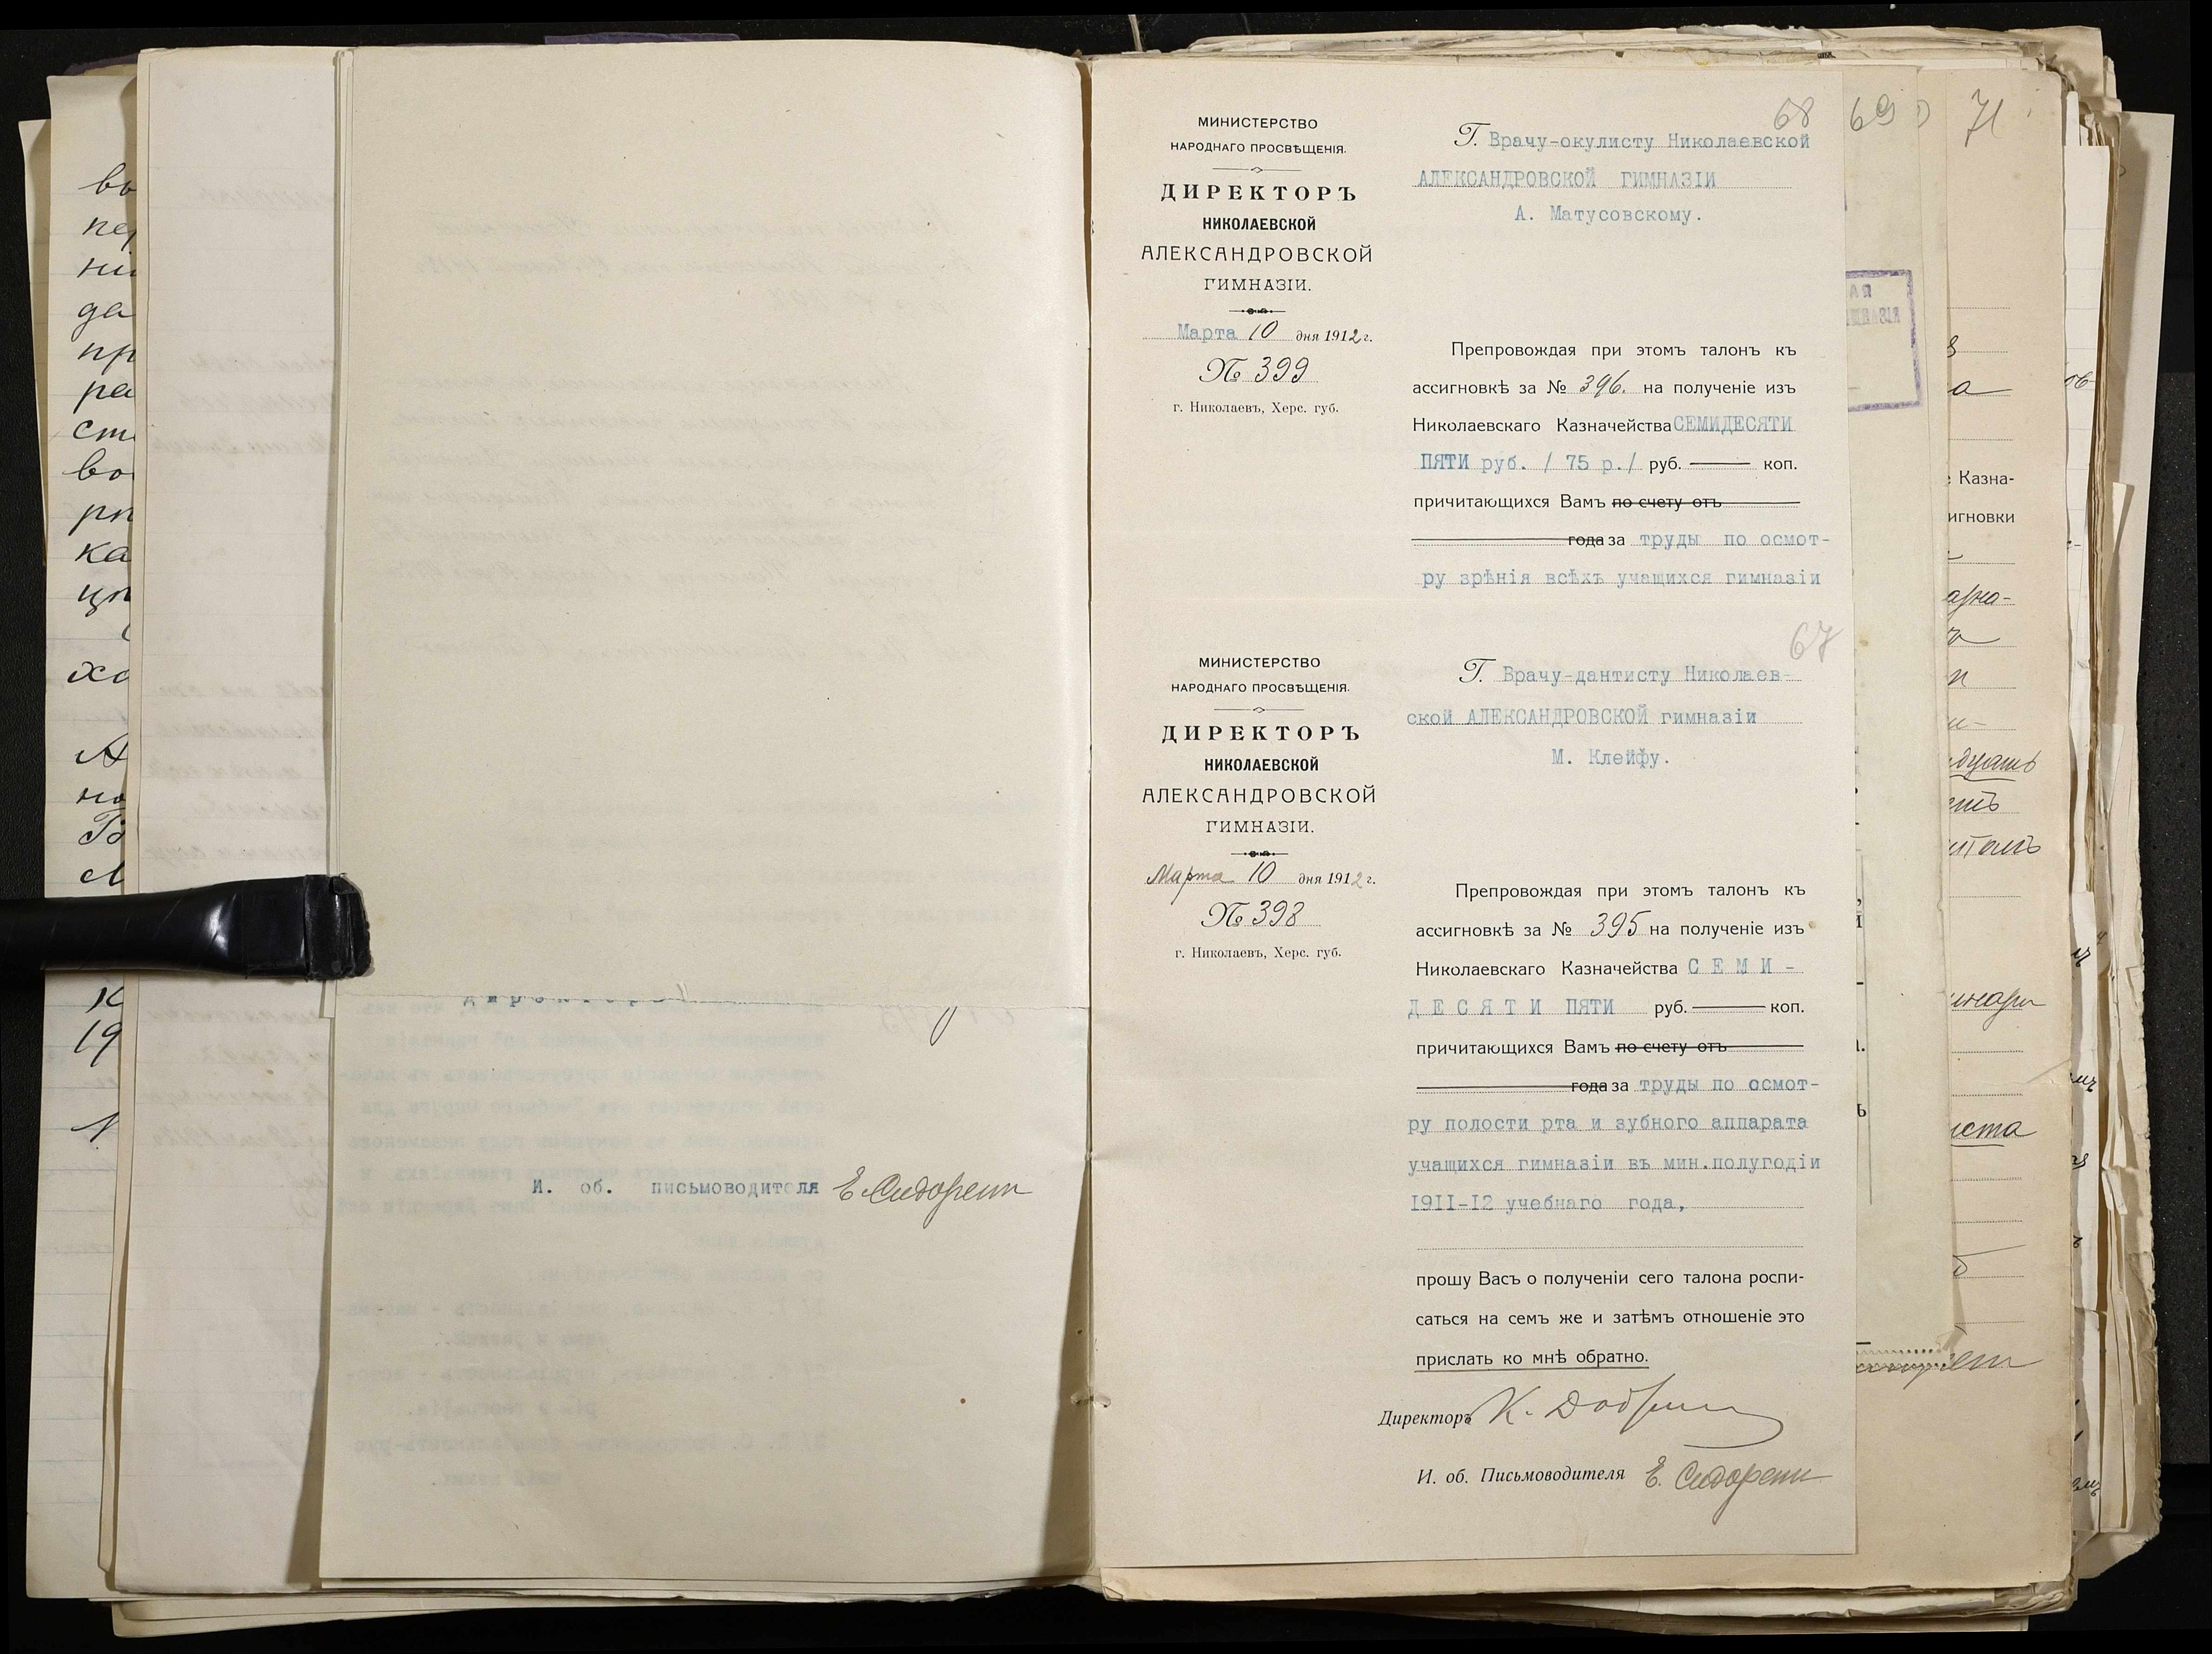 И. об. письмоводителя Е. Сидоренк
68
МИНИСТЕРСТВО
НАРОДНАГО ПРОСВѢЩЕНІЯ.
ДИРЕКТОРЪ
НИКОЛАЕВСКОЙ
АЛЕКСАНДРОВСКОЙ
ГИМНАЗІИ.
Марта 10 дня 1912 г.
№ 399
г. Николаевъ, Херс. губ.
Г. Врачу-окулисту Николаевской
АЛЕКСАНДРОВСКОЙ ГИМНАЗІИ
А. Матусовскому.
Препровождая при этомъ талонъ къ
ассигновкѣ за № 396. на полученіе изъ
Николаевскаго Казначейства СЕМИДЕСЯТИ
ПЯТИ руб. / 75 р./ руб. —— коп.
причитающихся Вамъ по счету отъ
года за труды по осмот-
ру зрѣнія всѣхъ учащихся гимназіи
67
МИНИСТЕРСТВО
НАРОДНАГО ПРОСВѢЩЕНІЯ.
ДИРЕКТОРЪ
НИКОЛАЕВСКОЙ
АЛЕКСАНДРОВСКОЙ
ГИМНАЗІИ.
Марта 10 дня 1912 г.
№ 398
г. Николаевъ, Херс. губ.
Г. Врачу-дантисту Николаев-
ской АЛЕКСАНДРОВСКОЙ гимназіи
М. Клейфу.
Препровождая при этомъ талонъ къ
ассигновкѣ за № 395 на полученіе изъ
Николаевскаго Казначейства СЕМИ-
ДЕСЯТИ ПЯТИ руб. —— коп.
причитающихся Вамъ по счету отъ
года за труды по осмот-
ру полости рта и зубного аппарата
учащихся гимназіи въ мин.полугодіи
1911-12 учебнаго года,
прошу Васъ о полученіи сего талона роспи-
саться на семъ же и затѣмъ отношеніе это
прислать ко мнѣ обратно.
Директоръ К.
И. об. Письмоводителя Е. Сидоренк
69
71
Казна-
игновки